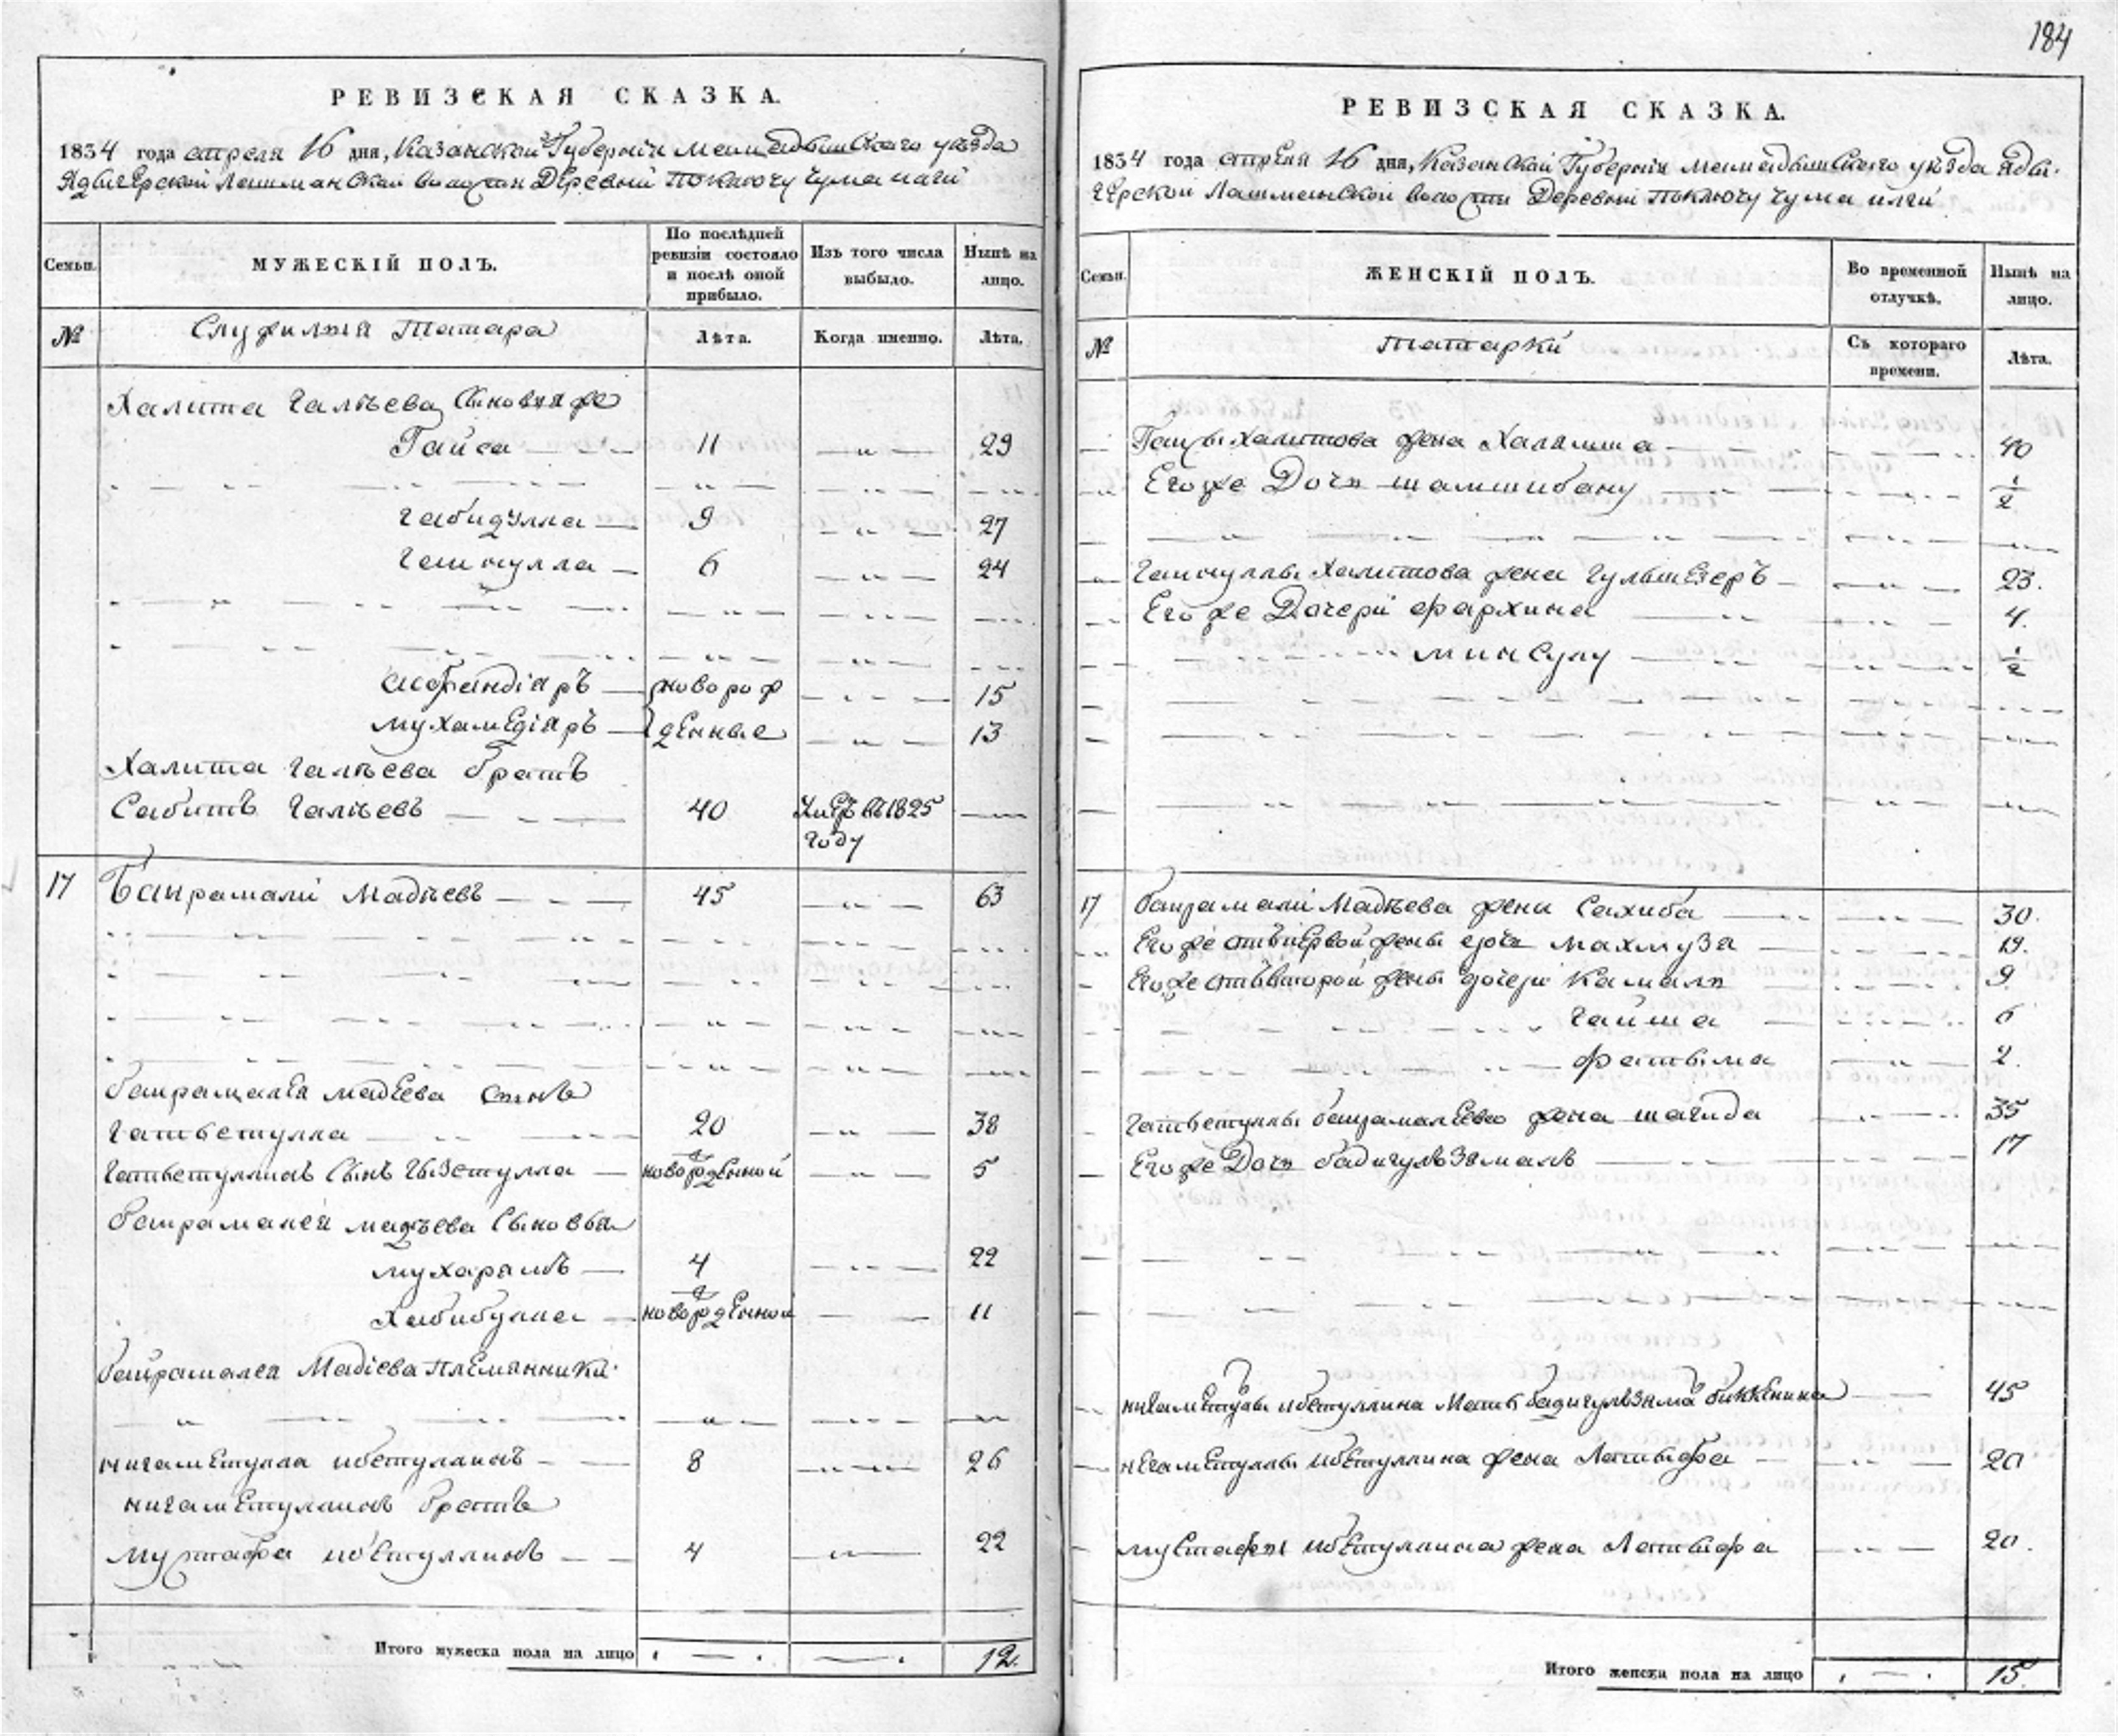 184
РЕВИЗСКАЯ СКАЗКА.
1834 года апреля 16 дня, Казанской Губернии мамадышского уезда
Ядыгерской Лашманской волости Деревни
Семьи.
МУЖЕСКІЙ ПОЛЪ.
По послѣдней ревизіи состояло и послѣ оной прибыло.
Изъ того числа выбыло.
Нынѣ на лицо.
№
Служилыя Татара
Лѣта.
Когда именно.
Лѣта.
Халита Галѣева Сыновья же
Гайса 11 29
Габидулла 9 27
Гайнулла 6 24
Исфандіаръ новорож 15
Мухамедіаръ денные 13
Халита Галѣева братъ
Сабитъ Галѣевъ 40 Умеръ въ 1825 году
17 Баирамали Мадѣевъ 45 63
Баирамалея Мадеева сынъ
20 38
сынъ новорожденной 5
Баирамалея Мадѣева Сыновья
Мухарамъ 4 22
Хабибулла новорожденной 11
Баирамалея Мадіева племянники
Нигаметулла Ибетуллинъ 8 26
Нигаметуллинъ братъ
Мустафа Ибетуллинъ 4 22
Итого мужеска пола на лицо 12.
РЕВИЗСКАЯ СКАЗКА.
1834 года апреля 16 дня, Казанской Губернии мамадышского уезда Яды-
герской Лашманской волости Деревни
Семьи.
ЖЕНСКІЙ ПОЛЪ.
Во временной отлучкѣ.
Нынѣ на лицо.
№
татарки
Съ котораго времени.
Лѣта.
Гайсы Халитова жена 40
Его же Дочь Шамшибану 1/2
Гайнуллы Халитова жена 23.
Его же Дочери Фархина 4.
Минсулу 1/2
17 Баирамали Мадѣева жена Сахиба 30.
Его же отъ первой жены дочь Махмуза 19.
Его же отъ второй жены дочери Камаля 9
Гайша 6
Фатыма 2.
жена Шагида 35
Его же Дочь Бадигульзямалъ 17
Нигаметуллы Ибетуллина Мать Бадигульзяма Биккенина 45
Нигаметуллы Ибетуллина жена Латыфа 20
Мустафы Ибетуллина жена Латыфа 20.
Итого женска пола на лицо 15